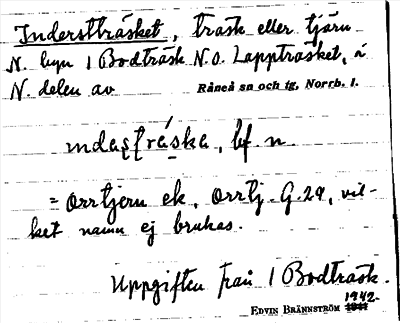 Inderstträsket, träsk eller tjärn
N. byn 1 Bodträsk N.O. Lappträsket, å
N. delen av Råneå sn och tg, Norrb. l.
bf. n.
= Orrtjern ek. Orrtj. G. 29, vil-
ket namn ej brukas.
Uppgiften från 1 Bodträsk.
1942.
EDVIN BRÄNNSTRÖM 1941